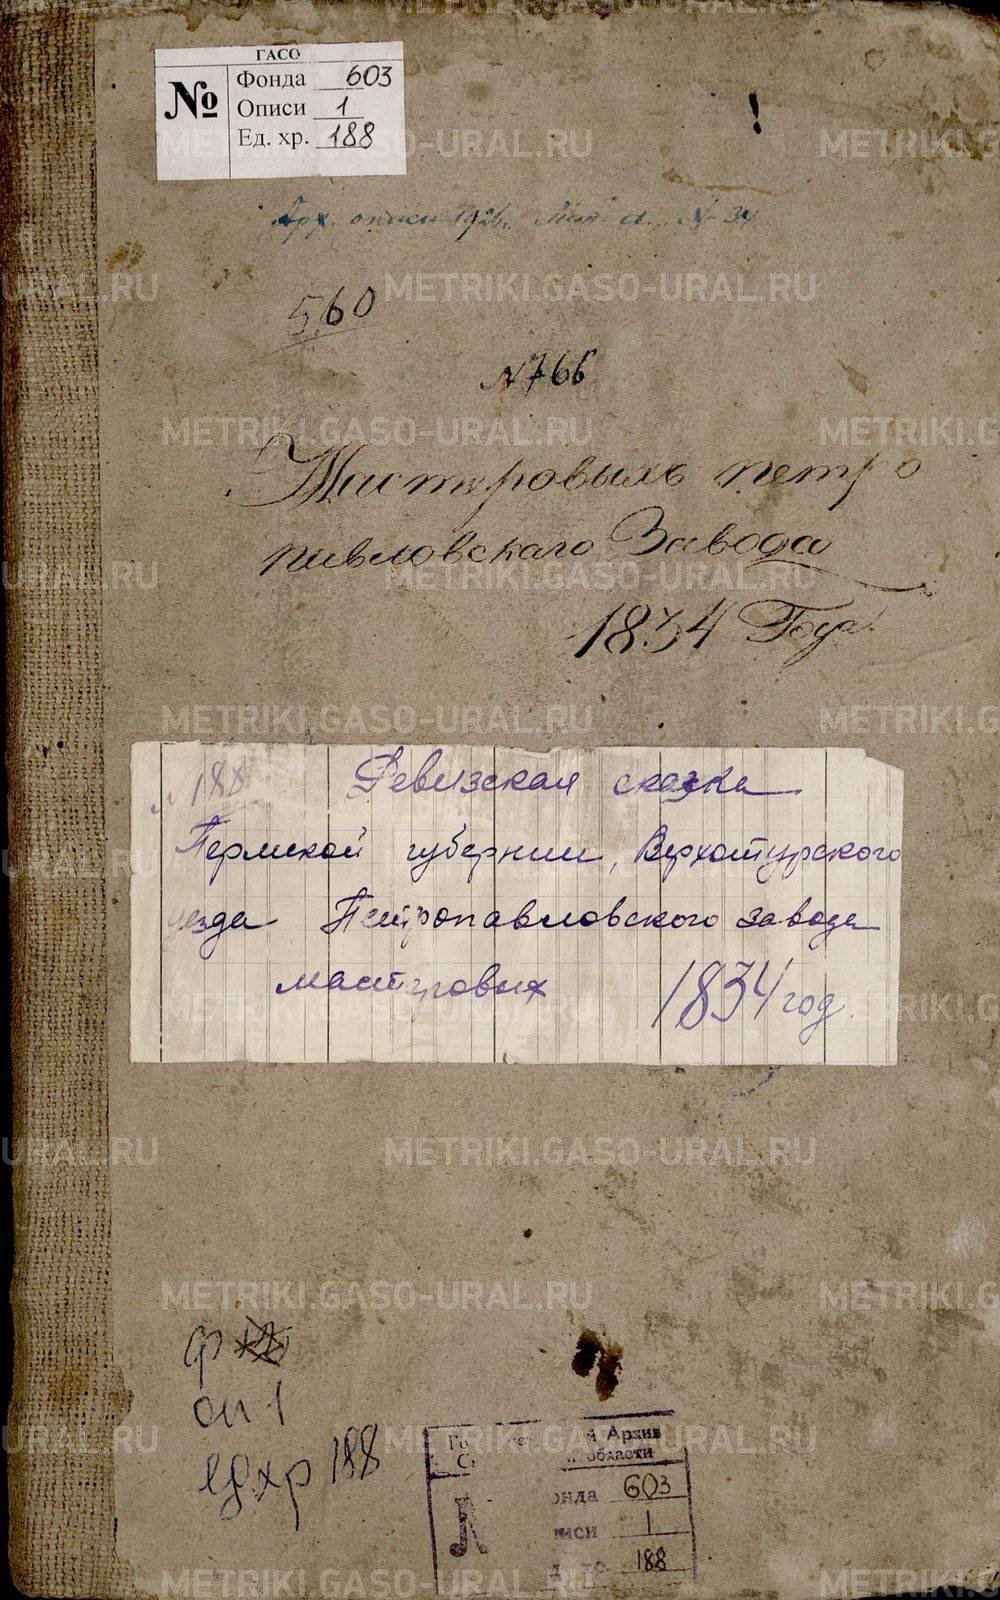 ГАСО
№
Фонда 603
Описи 1
Ед. хр. 188
!
Арх. описи 1926. Лит. а. № 34
560
N 766
Мастеровыхъ петро
павловскаго Завода
1834 Года
№ 188
Ревизская сказка
Пермской губернии, Верхотурского
уезда Петропавловского завода
мастеровых 1834 год.
ф
оп 1
ед.хр 188
й Архив
области
онда 603
иси 1
188
METRIKI.GASO-URAL.RU